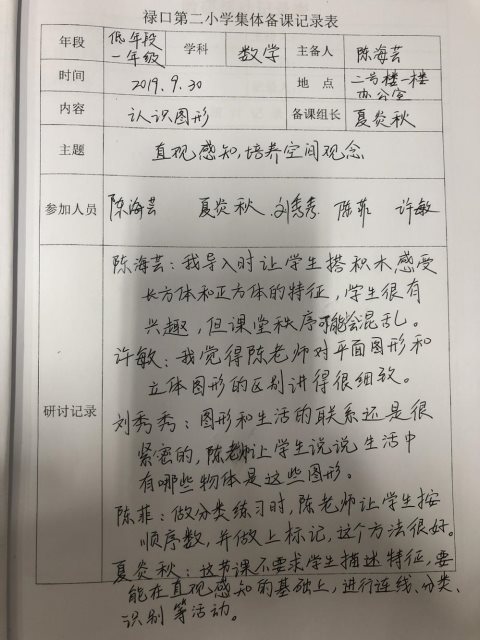 禄口第二小学集体备课记录表
年段 低年段 一年级 学科 数学 主备人 陈海芸
时间 2019.9.30 地点 二号楼一楼办公室
内容 认识图形 备课组长 夏炎秋
主题 直观感知,培养空间观念
参加人员 陈海芸 夏炎秋 刘秀秀 陈菲 许敏
研讨记录
陈海芸:我导入时让学生搭积木,感受
长方体和正方体的特征,学生很有
兴趣,但课堂秩序可能会混乱。
许敏:我觉得陈老师对平面图形和
立体图形的区别讲得很细致。
刘秀秀:图形和生活的联系还是很
紧密的,陈老师让学生说说生活中
有哪些物体是这些图形。
陈菲:做分类练习时,陈老师让学生按
顺序数,并做上标记,这个方法很好。
夏炎秋:这节课不要求学生描述特征,要
能在直观感知的基础上,进行连线、分类、
识别等活动。